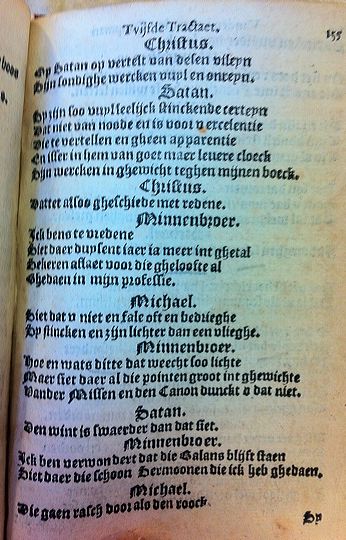 Tvijfde Tractaet. 155
Christus.
Op Satan op vertelt van desen vileyn
Sijn sondighe wercken vuyl en onreyn.
Satan.
Sy zijn soo vuyl leelijck stinckende certeyn
Dat niet van noode en is voor v excelentie
Die te vertellen en gheen apparentie
En isser in hem van goet maer levere cloeck
Sijn wercken in ghewicht teghen mijnen boeck.
Christus.
Dattet alsoo gheschiede met redene.
Minnenbroer.
Ick bens te vredene
Siet daer duysent iaer ia meer int ghetal
Sekeren aflaet voor die ghelooftse al
Ghedaen in mijn professie.
Michael.
Siet dat v niet en fale oft en bedrieghe
Sy stincken en zijn lichter dan een vlieghe.
Minnenbroer.
Hoe en wats ditte dat weecht soo lichte
Maer siet daer al die pointen groot int ghewichte
Vander Missen en den Canon dunckt v dat niet.
Satan.
Den wint is swaerder dan dat siet.
Minnenbroer.
Ick ben verwondert dat die Balans blijft staen
Siet daer die schoon Sermoonen die ick heb ghedaen.
Michael.
Die gaen rasch door als den roock
Sy